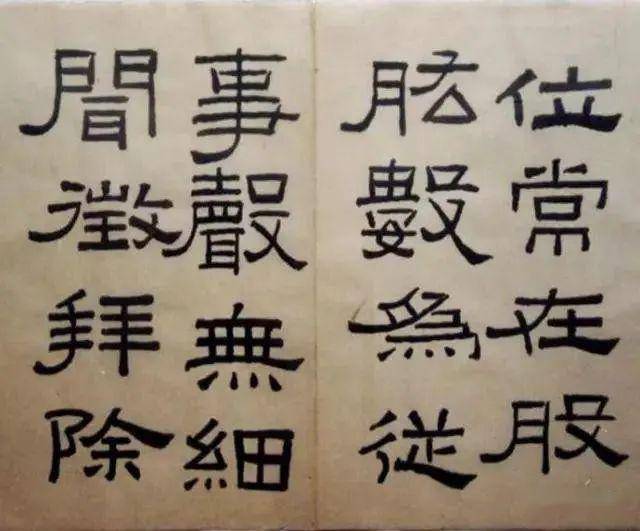 位常在股
肱數為從
事聲無細
聞徵拜除